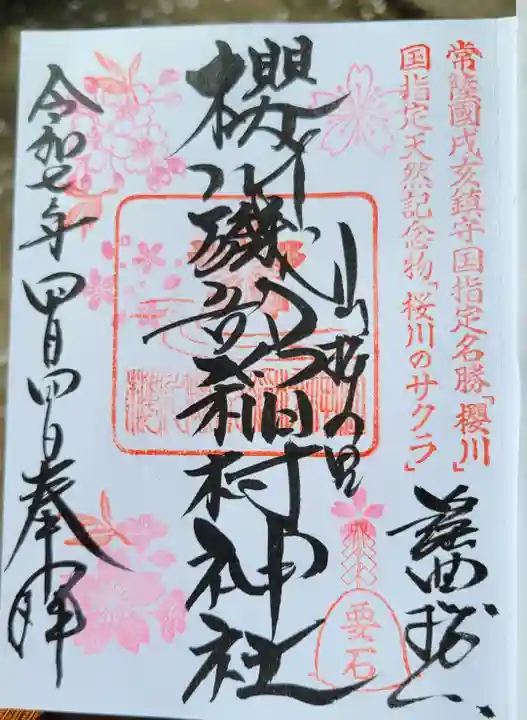 常陸國戌亥鎮守国指定名勝「櫻川」
国指定天然記念物「桜川のサクラ」
謡曲桜川
山桜の里
要石
櫻川磯部稲村神社
令和七年四月四日奉拝